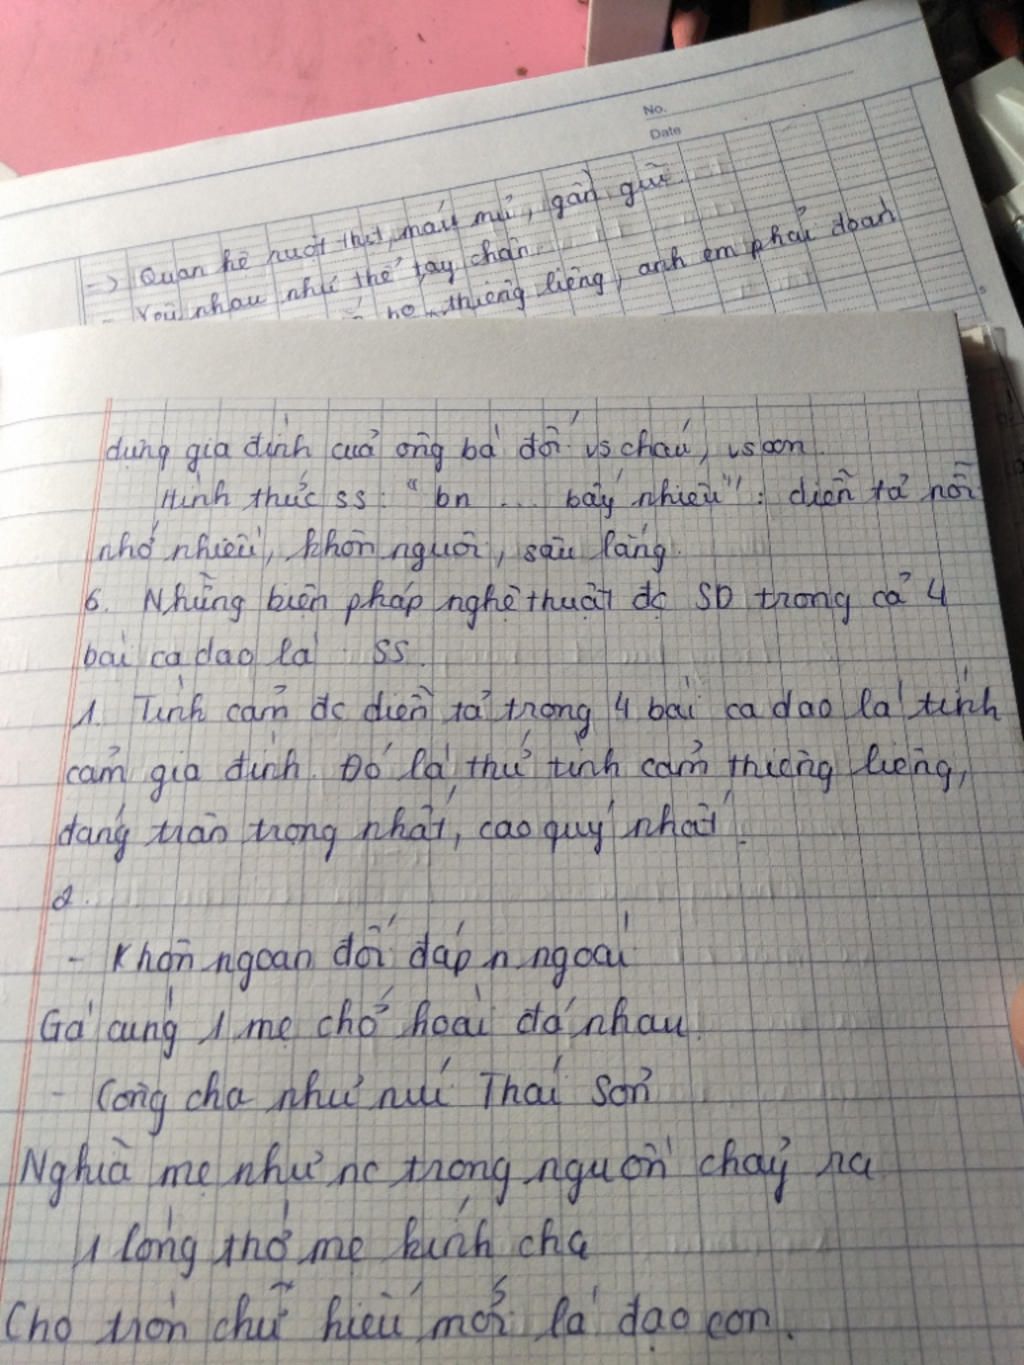 No.
Date
=> Quan hệ ruột thịt, máu mủ, gần gũi.
- Yêu nhau như thể tay chân.
thiêng liêng, anh em phải đoàn
dựng gia đình của ông bà đối vs cháu, vs con.
Hình thức SS: "bn ... bấy nhiêu": diễn tả nỗi
nhớ nhiều, khôn nguôi, sâu lắng.
6. Những biện pháp nghệ thuật đc SD trong cả 4
bài ca dao là SS.
1. Tình cảm đc diễn tả trong 4 bài ca dao là tình
cảm gia đình. Đó là thứ tình cảm thiêng liêng,
đáng trân trọng nhất, cao quý nhất.
2.
- Khôn ngoan đối đáp n ngoài
Gà cùng 1 mẹ chớ hoài đá nhau.
- Công cha như núi Thái Sơn
Nghĩa mẹ như nc trong nguồn chảy ra
1 lòng thờ mẹ kính cha
Cho tròn chữ hiếu mới là đạo con.